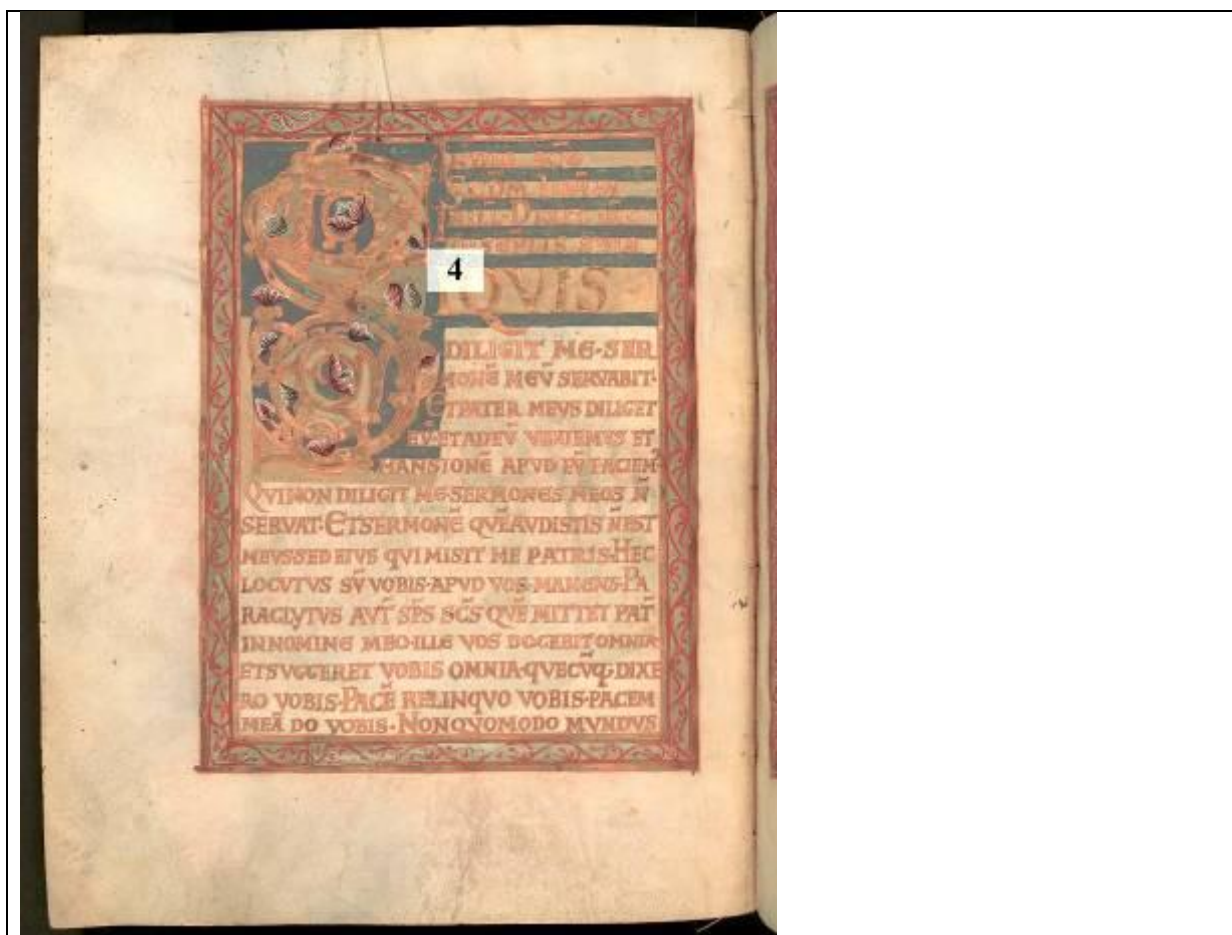 4
QVIS
DILIGIT ME·SER
MONĒ MEV̄ SERVABIT·
ETPATER MEVS DILIGET
EV̄·ETADEV̄ VENIEMVS ET
MANSIONĒ APVD EV̄ FACIEM
QVINON DILIGIT ME·SERMONES MEOS N̄
SERVAT·ETSERMONĒ QVĒAVDISTIS N̄EST
MEVS·SED EIVS QVI MISIT ME PATRIS·HEC
LOCVTVS SV̄ VOBIS·APVD VOS·MANENS·PA
RACLYTVS AVT̄ SP̄S SC̄S QVĒ MITTET PAT̄
INNOMINE MEO·ILLE VOS DOCEBIT OMNIA·
ETSVGGERET VOBIS OMNIA·QVECV̄Q·DIXE
RO VOBIS·PACĒ RELINQVO VOBIS·PACEM
MEĀ DO VOBIS·NONQVOMODO MVNDVS